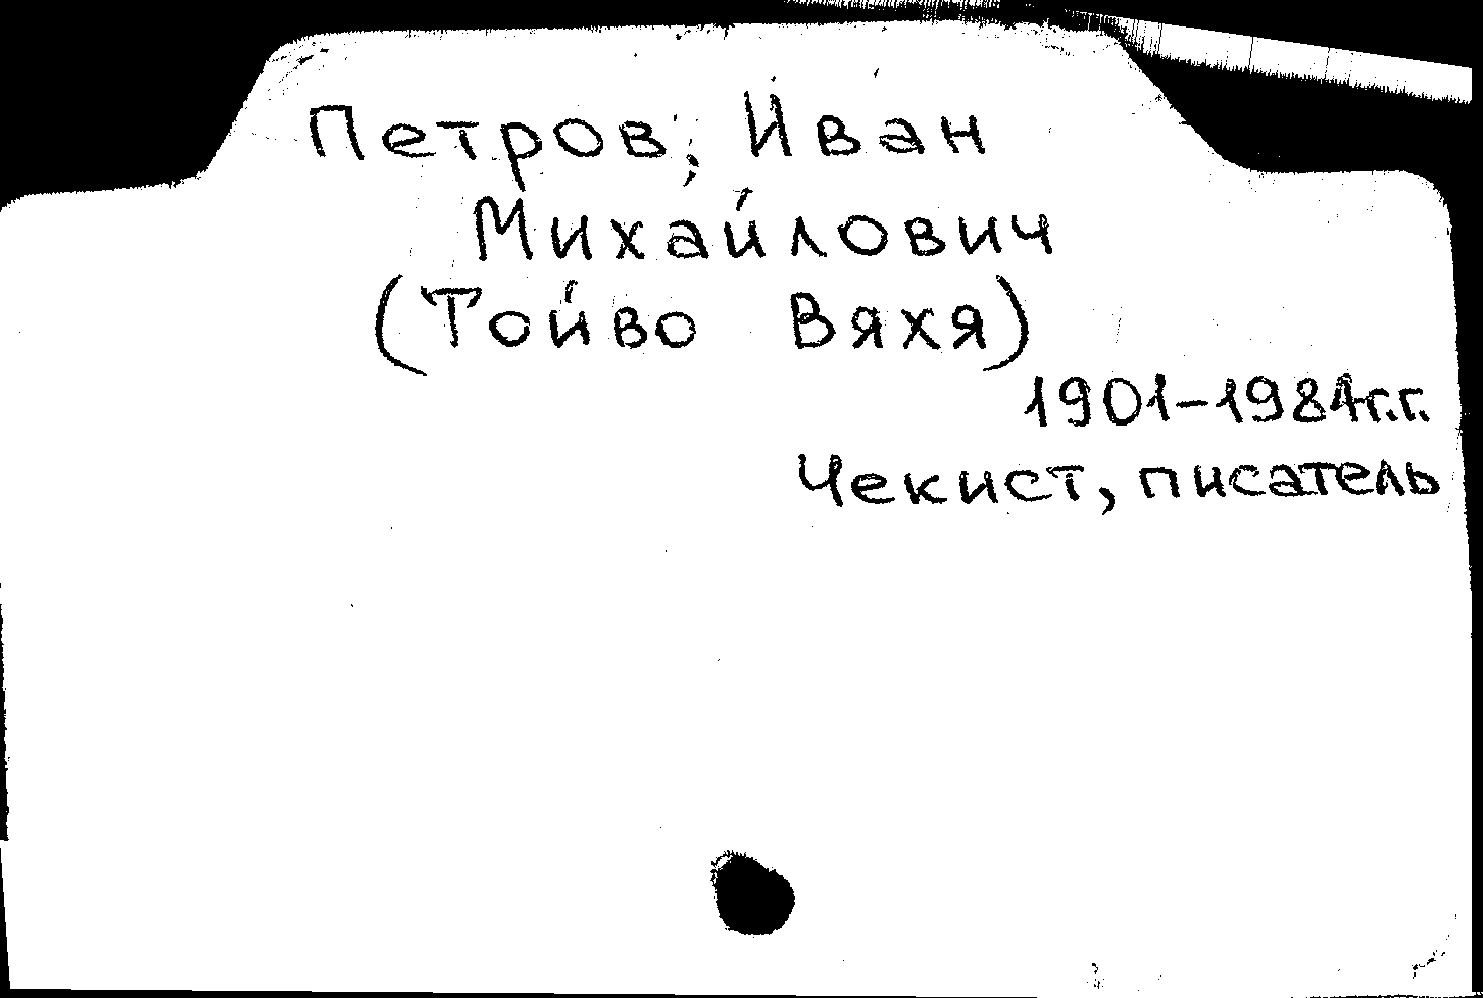 Петров, Иван
Михайлович
(Тойво Вяхя)
1901-1984г.г.
Чекист, писатель